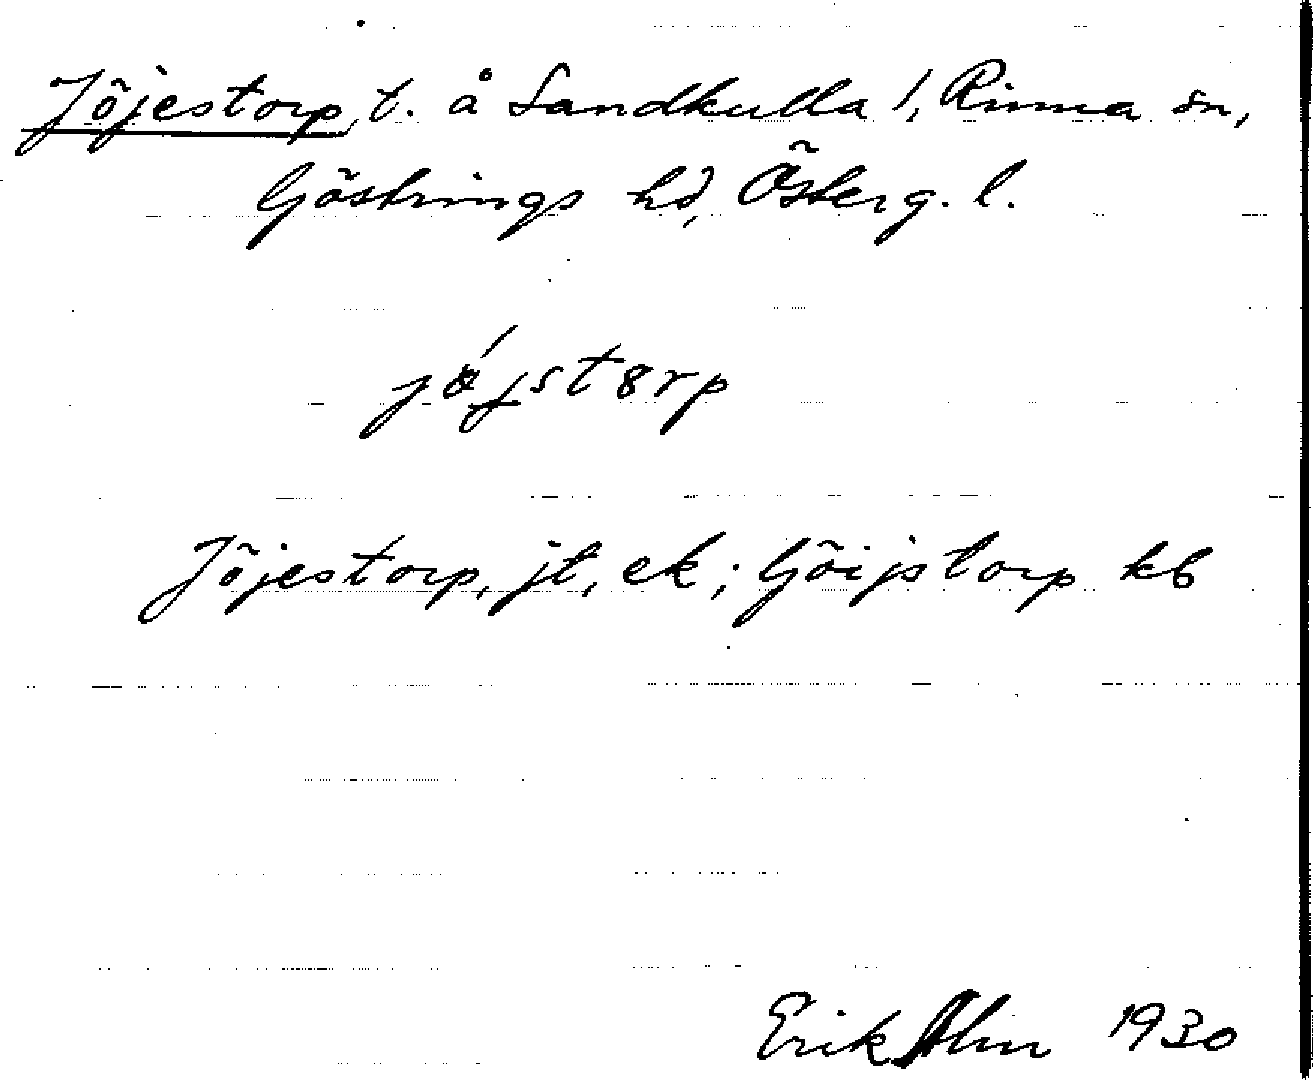 Jöjestorp, t. å Sandkulla 1, Rinna sn,
Göstrings hd, Österg. l.
jǿjstɞrp
Jöjestorp, jt, ek; Göijstorp kb
Erik Alm 1930